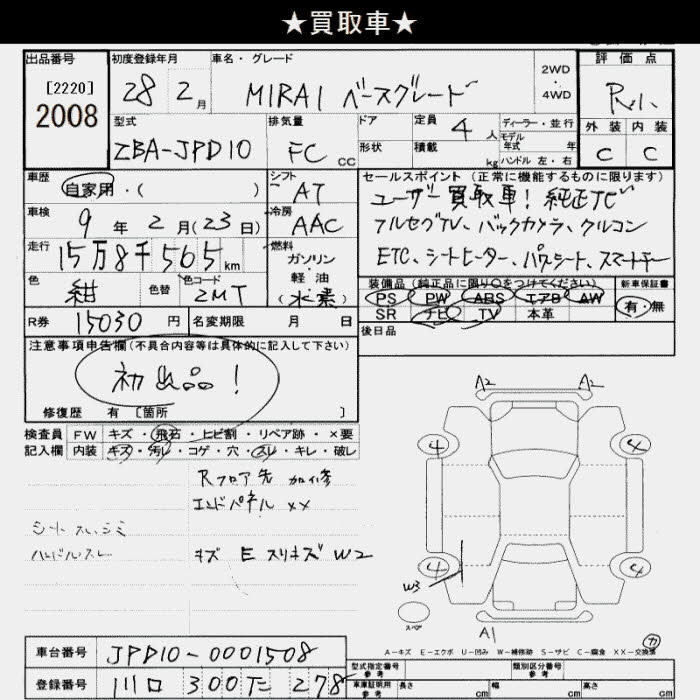 ★買取車★
出品番号
[2220]
2008
初度登録年月
28 2月
車名・グレード
MIRAI ベースグレード
2WD
・
4WD
評価点
R小
外装 内装
C C
型式
ZBA-JPD10
排気量
FC cc
ドア
形状
定員 4人
積載 kg
ディーラー・並行
モデル年式 年
ハンドル 左・右
車歴
自家用・( )
シフト
AT
車検
9年2月(23日)
冷房
AAC
走行
15万8千565km
燃料
ガソリン
軽油
(水素)
色
紺
色替
色コード
2MT
R券 15030円
名変期限 月 日
セールスポイント(正常に機能するものに限ります)
ユーザー買取車!純正ナビ
フルセグTV、バックカメラ、クルコン
ETC、シートヒーター、パワーシート、スマートキー
装備品(純正品に限り○をつけてください)
PS PW ABS エアB AW
SR ナビ TV 本革
新車保証書
有・無
後日品
注意事項申告欄(不具合内容等は具体的に記入して下さい)
初出品!
修復歴 有 [箇所 ]
検査員
記入欄
FW キズ・飛石・ヒビ割・リペア跡・×要
内装 キズ・汚レ・コゲ・穴・スレ・キレ・破レ
Rフロア先 加修
エンドパネル XX
シート スレ、シミ
ハンドルスレ
キズ E スリキズ W2
A2 A2
4 4
4 4
W3
スペア
A1
カ
A-キズ E-エクボ U-凹み W-補修跡 S-サビ C-腐食 XX-交換済
車台番号 JPD10-0001508
登録番号 川口 300 278
型式指定番号
参考
類別区分番号
参考
車庫証明用
参考
長さ cm 幅 cm 高さ cm